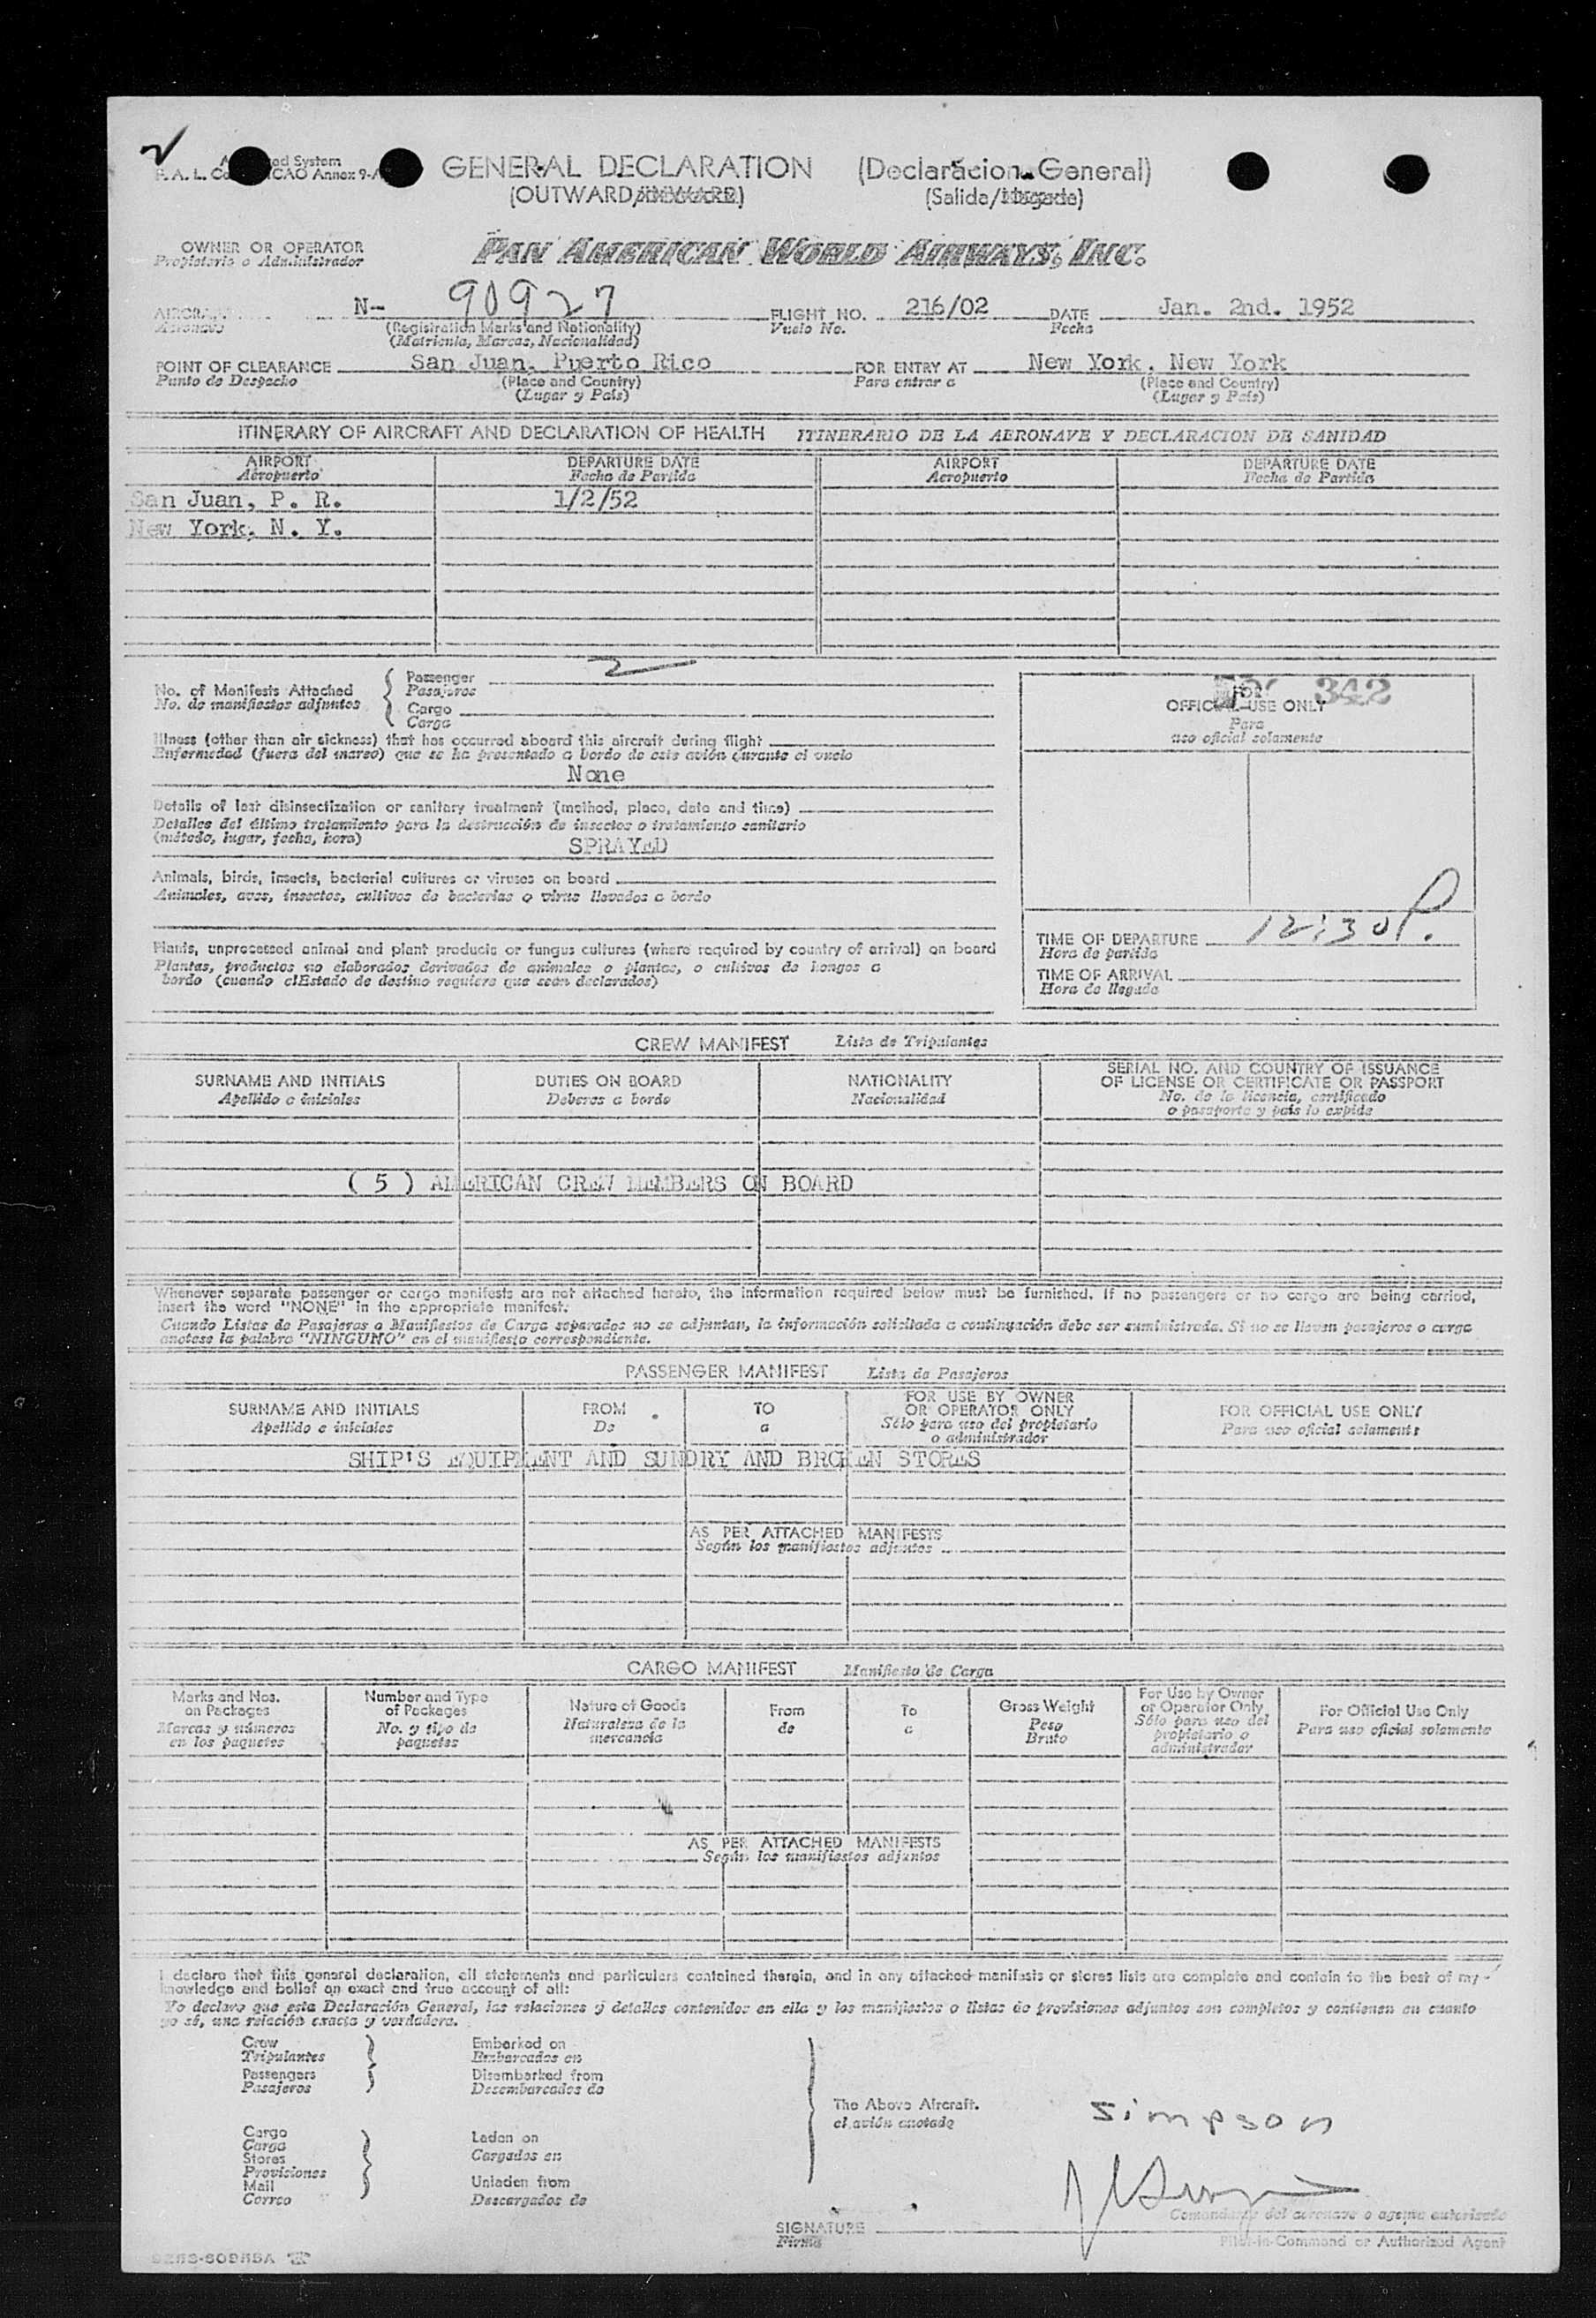 GENERAL DECLARATION (Declaracion General)
(OUTWARD/INWARD) (Salida/llegada)
OWNER OR OPERATOR
Propietario o Administrador
PAN AMERICAN WORLD AIRWAYS, INC.
N- 90927 FLIGHT NO. 216/02 DATE Jan. 2nd. 1952
(Registration Marks and Nationality) Vuelo No. Fecha
(Matricula, Marcas, Nacionalidad)
POINT OF CLEARANCE San Juan, Puerto Rico FOR ENTRY AT New York, New York
Punto de Despacho (Place and Country) Para entrar a (Place and Country)
(Lugar y País) (Lugar y País)
ITINERARY OF AIRCRAFT AND DECLARATION OF HEALTH ITINERARIO DE LA AERONAVE Y DECLARACION DE SANIDAD
AIRPORT DEPARTURE DATE AIRPORT DEPARTURE DATE
Aeropuerto Fecha de Partida Aeropuerto Fecha de Partida
San Juan, P. R. 1/2/52
New York, N. Y.
No. of Manifests Attached
No. de manifiestos adjuntos
Passenger 2
Pasajeros
Cargo
Carga
Illness (other than air sickness) that has occurred aboard this aircraft during flight
Enfermedad (fuera del mareo) que se ha presentado a bordo de este avión durante el vuelo
None
Details of last disinsectization or sanitary treatment (method, place, date and time)
Detalles del último tratamiento para la destrucción de insectos o tratamiento sanitario
(método, lugar, fecha, hora)
SPRAYED
Animals, birds, insects, bacterial cultures or viruses on board
Animales, aves, insectos, cultivos de bacterias o virus llevados a bordo
Plants, unprocessed animal and plant products or fungus cultures (where required by country of arrival) on board
Plantas, productos no elaborados derivados de animales o plantas, o cultivos de hongos a
bordo (cuando elEstado de destino requiere que sean declarados)
FOR 342
OFFICIAL USE ONLY
Para
uso oficial solamente
TIME OF DEPARTURE 12:30 P.
Hora de partida
TIME OF ARRIVAL
Hora de llegada
CREW MANIFEST Lista de Tripulantes
SURNAME AND INITIALS DUTIES ON BOARD NATIONALITY SERIAL NO. AND COUNTRY OF ISSUANCE
OF LICENSE OR CERTIFICATE OR PASSPORT
Apellido e iniciales Deberes a bordo Nacionalidad No. de la licencia, certificado
o pasaporte y país lo expide
( 5 ) AMERICAN CREW MEMBERS ON BOARD
Whenever separate passenger or cargo manifests are not attached hereto, the information required below must be furnished. If no passengers or no cargo are being carried,
insert the word "NONE" in the appropriate manifest.
Cuando Listas de Pasajeros o Manifiestos de Carga separados no se adjuntan, la información solicitada a continuación debe ser suministrada. Si no se llevan pasajeros o carga
anotese la palabra "NINGUNO" en el manifiesto correspondiente.
PASSENGER MANIFEST Lista de Pasajeros
SURNAME AND INITIALS FROM TO FOR USE BY OWNER
OR OPERATOR ONLY FOR OFFICIAL USE ONLY
Apellido e iniciales De a Sólo para uso del propietario
o administrador Para uso oficial solamente
SHIP'S EQUIPMENT AND SUNDRY AND BROKEN STORES
AS PER ATTACHED MANIFESTS
Según los manifiestos adjuntos
CARGO MANIFEST Manifiesto de Carga
Marks and Nos.
on Packages
Marcas y números
en los paquetes
Number and Type
of Packages
No. y tipo de
paquetes
Nature of Goods
Naturaleza de la
mercancía
From
de
To
a
Gross Weight
Peso
Bruto
For Use by Owner
or Operator Only
Sólo para uso del
propietario o
administrador
For Official Use Only
Para uso oficial solamente
AS PER ATTACHED MANIFESTS
Según los manifiestos adjuntos
I declare that this general declaration, all statements and particulars contained therein, and in any attached manifests or stores lists are complete and contain to the best of my
knowledge and belief an exact and true account of all:
Yo declaro que esta Declaración General, las relaciones y detalles contenidos en ella y los manifiestos o listas de provisiones adjuntos son completos y contienen en cuanto
yo sé, una relación exacta y verdadera.
Crew
Tripulantes
Passengers
Pasajeros
Embarked on
Embarcados en
Disembarked from
Desembarcados de
Cargo
Carga
Stores
Provisiones
Mail
Correo
Laden on
Cargados en
Unladen from
Descargados de
The Above Aircraft.
el avión anotado
Simpson
Comandante del aeronave o agente autorizado
SIGNATURE
Firma
Pilot-in-Command or Authorized Agent